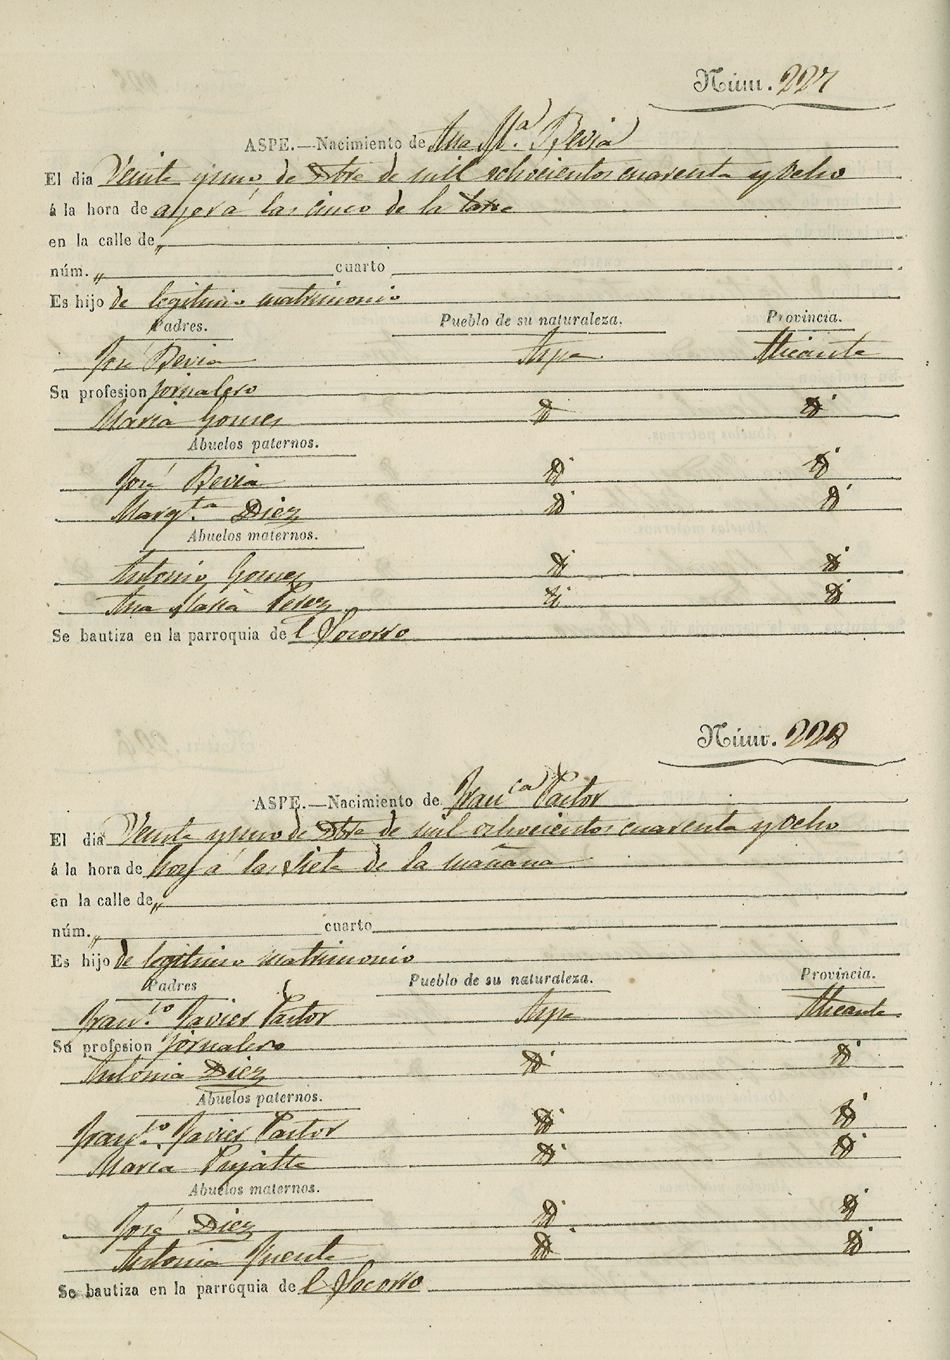 Núm. 227
ASPE.—Nacimiento de Ana Mª. Bevia
El dia Veinte y uno de Obre de mil ochocientos cuarenta y ocho
á la hora de ayer á las cinco de la tarde
en la calle de „
núm. „ cuarto
Es hijo de legitimo matrimonio
Padres. Pueblo de su naturaleza. Provincia.
José Bevia Aspe Alicante
Su profesion jornalero
Maria Gomez id id
Abuelos paternos.
José Bevia id id
Margta Diez id id
Abuelos maternos.
Antonio Gomez id id
Ana Maria Perez id id
Se bautiza en la parroquia de l Socorro
Núm. 228
ASPE.—Nacimiento de Franca Pastor
El dia Veinte y uno de Obre de mil ochocientos cuarenta y ocho
á la hora de hoy á las siete de la mañana
en la calle de „
núm. „ cuarto
Es hijo de legitimo matrimonio
Padres Pueblo de su naturaleza. Provincia.
Franco Javier Pastor Aspe Alicante
Su profesion jornalero
Antonia Diez id id
Abuelos paternos.
Franco Javier Pastor id id
Maria Pujalte id id
Abuelos maternos.
José Diez id id
Antonia Fuente id id
Se bautiza en la parroquia de l Socorro